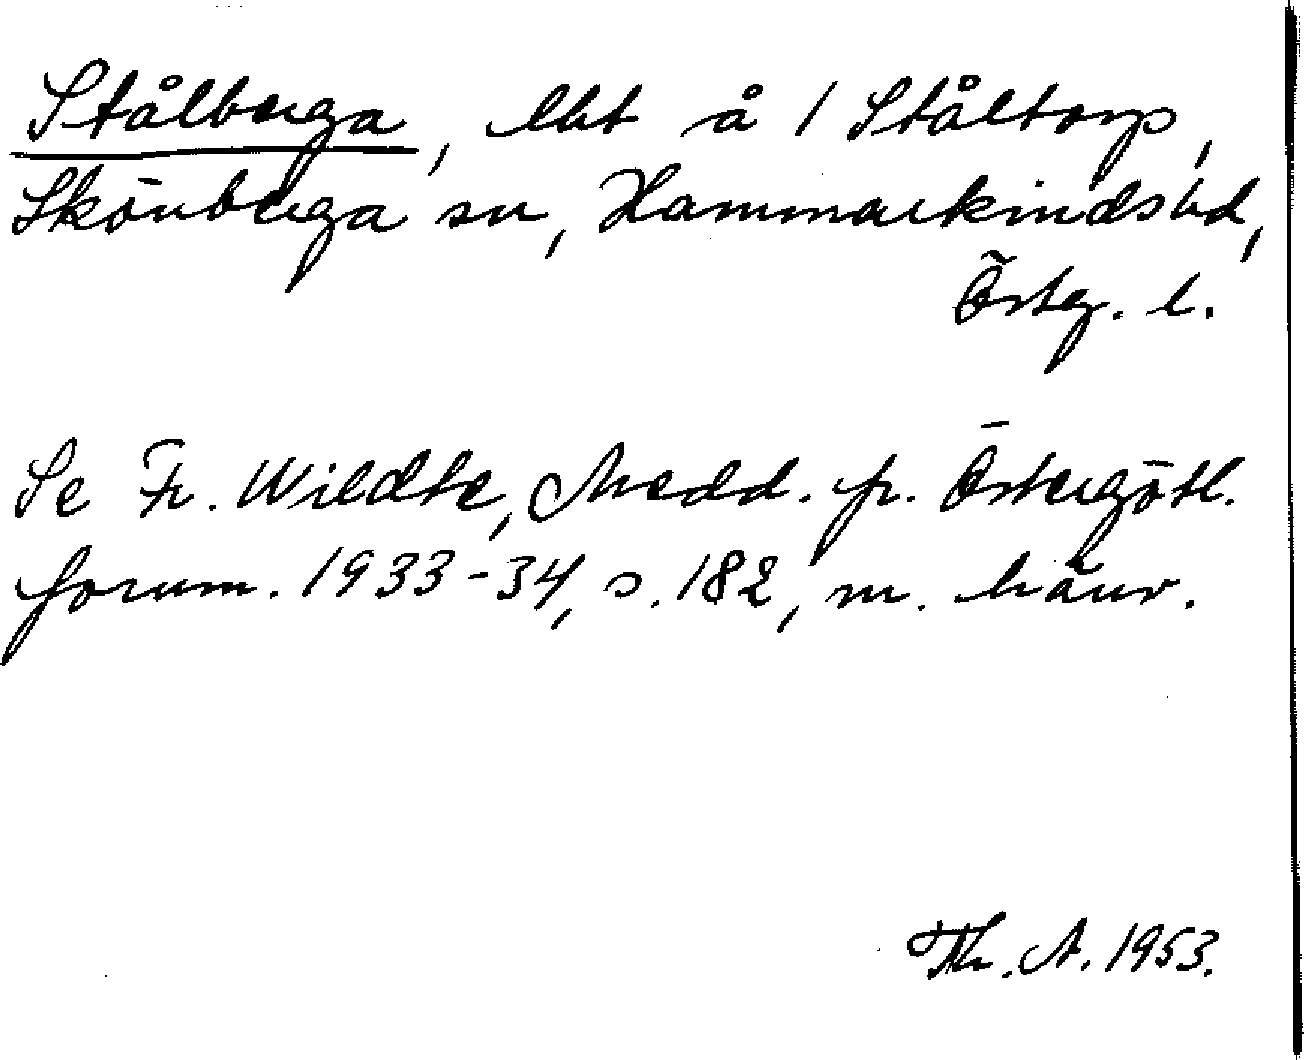 Stålberga, lht å 1 Ståltorp,
Skönberga sn, Hammarkinds hd,
Österg. l.
Se Fr. Wildte, Medd. fr. Östergötl.
fornm. 1933-34, s. 182, m. hänv.
Th. A. 1953.